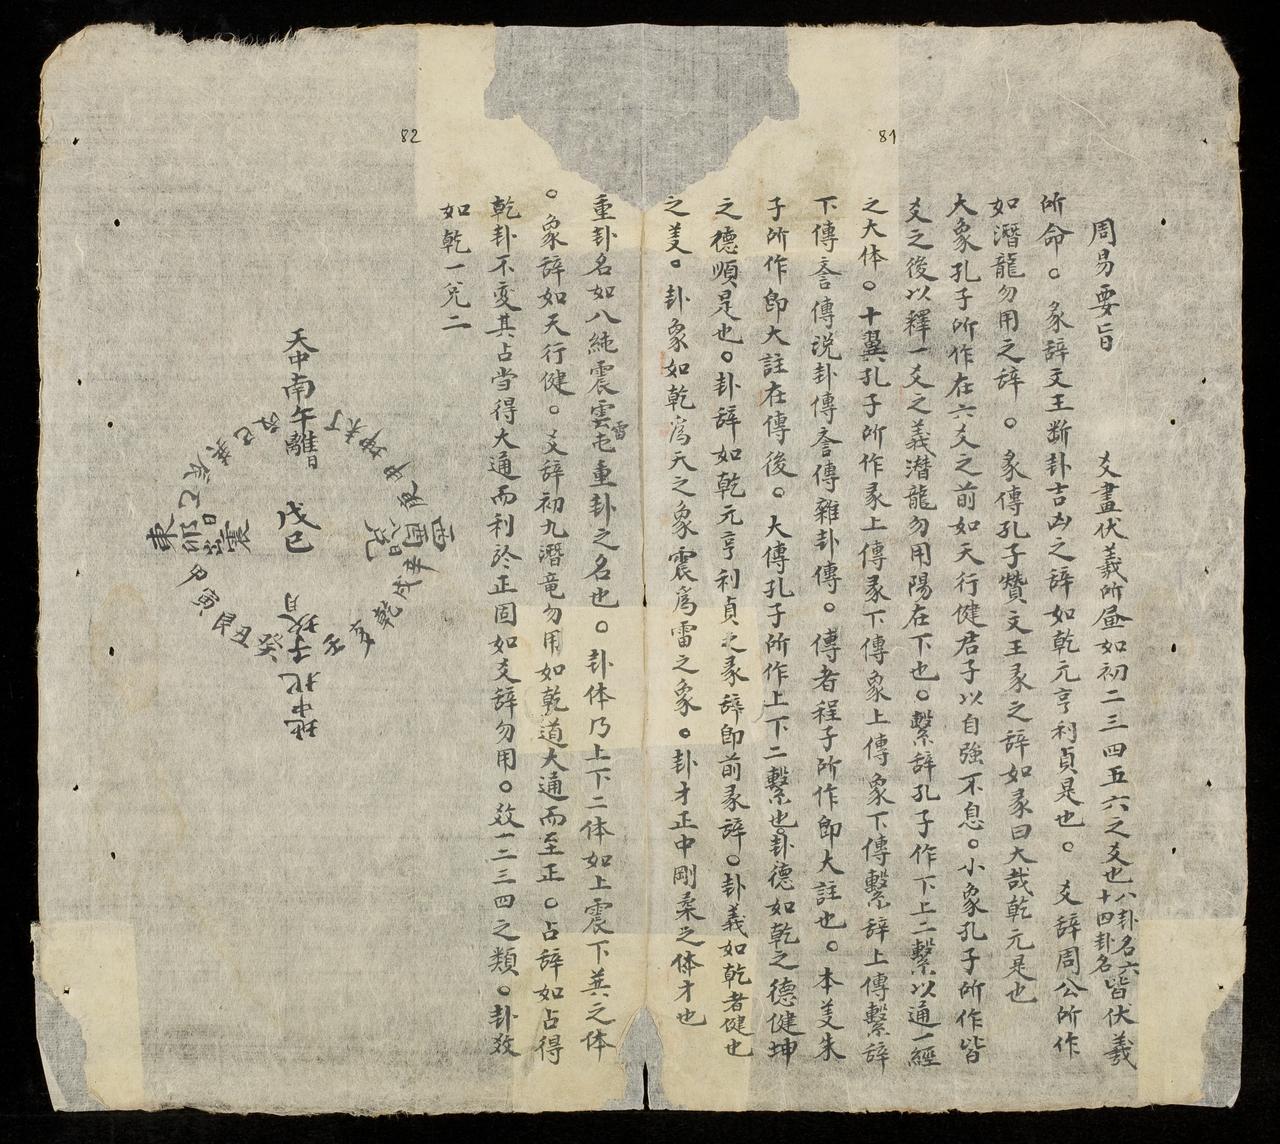 81
周易要旨　爻畫伏羲所畫如初二三四五六之爻也八卦名六十四卦名皆伏羲
所命。彖辞文王断卦吉凶之辞如乾元亨利貞是也。爻辞周公所作
如潛龍勿用之辞。彖傳孔子贊文王彖之辞如彖曰大哉乾元是也
大象孔子所作在六爻之前如天行健君子以自強不息。小象孔子所作皆
爻之後以釋一爻之義潛龍勿用陽在下也。繫辞孔子作下上二繫以通一經
之大体。十翼孔子所作彖上傳彖下傳象上傳象下傳繫辞上傳繫辞
下傳言傳説卦傳言傳雜卦傳。傳者程子所作即大註也。本义朱
子所作即大註在傳後。大傳孔子所作上下二繫也卦德如乾之德健坤
之德順是也。卦辞如乾元亨利貞之彖辞即前彖辞。卦義如乾者健也
之义。卦象如乾爲天之象震爲雷之象。卦才正中剛柔之体才也
82
重卦名如八純震雲雷屯重卦之名也。卦体乃上下二体如上震下巽之体
。象辞如天行健。爻辞初九潛竜勿用如乾道大通而至正。占辞如占得
乾卦不变其占当得大通而利於正固如爻辞勿用。效一二三四之類。卦效
如乾一兌二
天中南午離
戊巳
東卯日震
西酉日兌
地中北子坎月
丁未坤申庚
辛戌乾亥壬